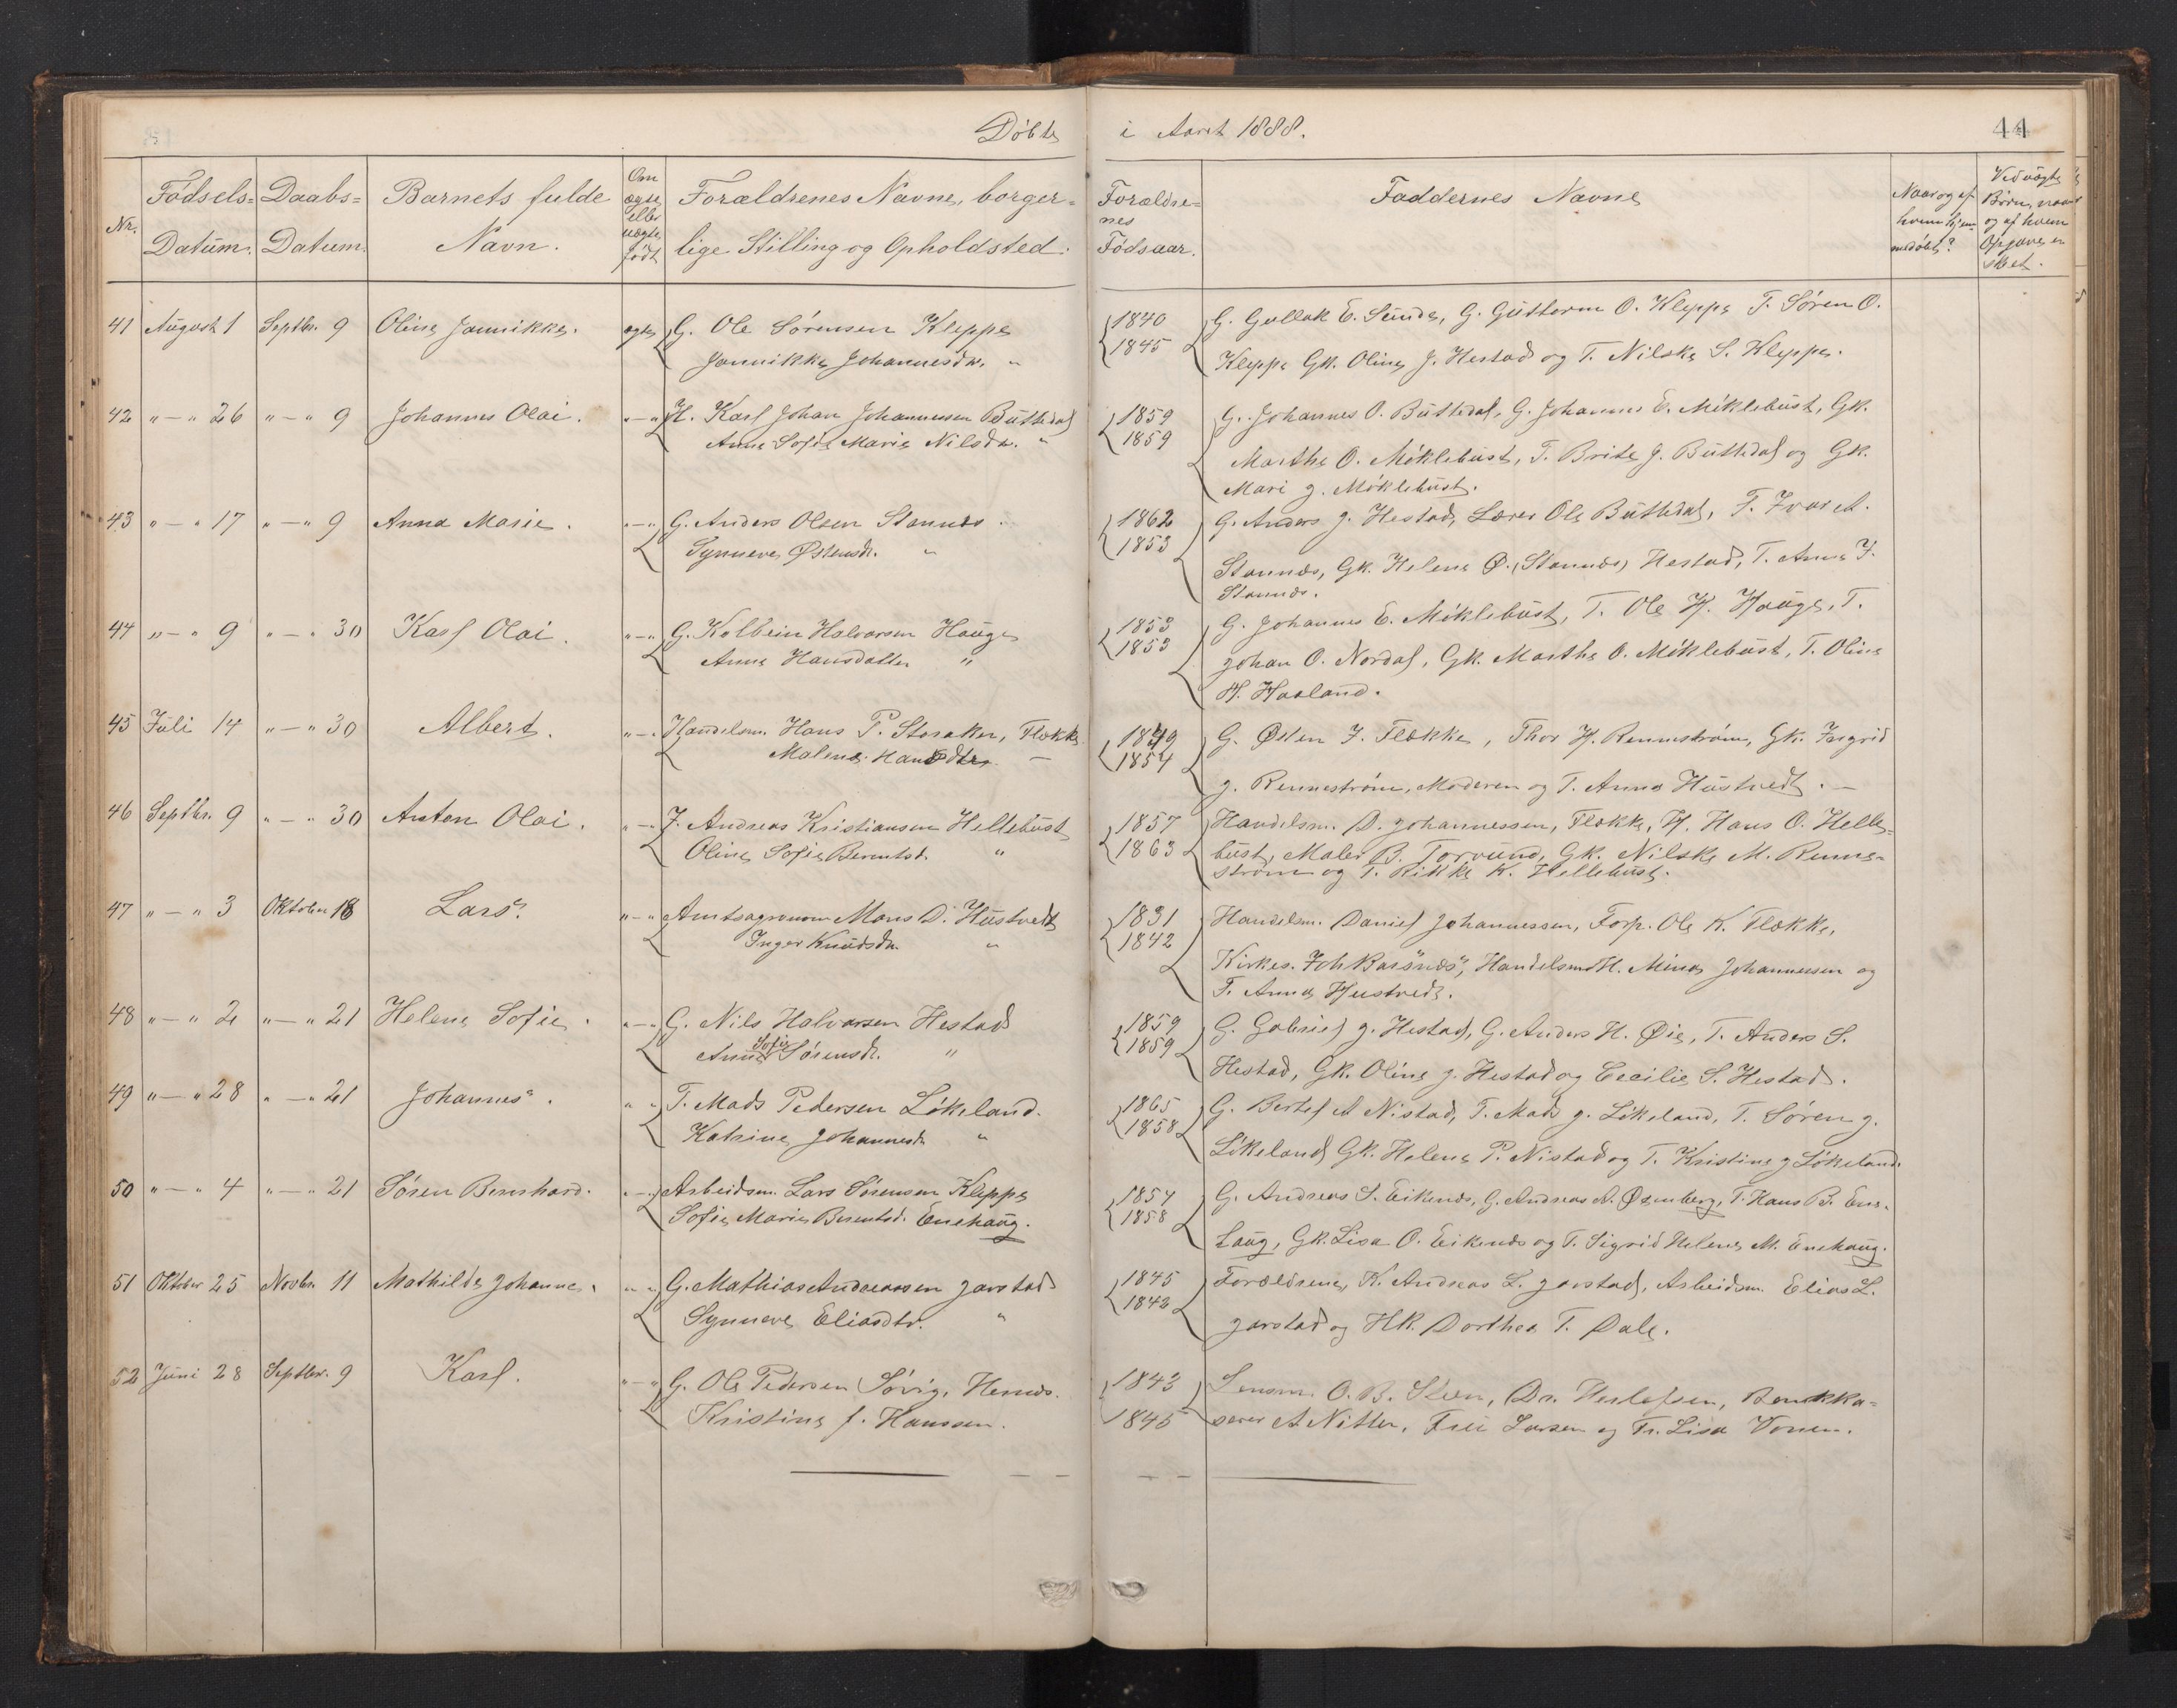 Døbte i Aaret 1888. 44
Nr. Fødsels= Datum. Daabs= Datum. Barnets fulde Navn. Om ægte eller uægte født Forældrenes Navne, borger= lige Stilling og Opholdsted. Forældre= nes Fødsaar. Faddernes Navne Naar og af hvem hjem= medøbt? Ved uægte Børn, naar og af hvem Opgave er skeet.
41 August 1 Septbr. 9 Oline Jannikke. ægte G. Ole Sørensen Kleppe 1840 G. Gullak E. Sunde, G. Guttorm O. Kleppe T. Søren O.
Jannikke Johannesdtr. " 1845 Kleppe Gk. Oline J. Hestad og T. Nilske S. Kleppe.
42 "—" 26 "—" 9 Johannes Olai. "—" H. Karl Johan Johannessen Büttedal 1859 G. Johannes O. Büttedal, G. Johannes E. Möklebust, Gk.
Anne Sofie Marie Nilsdtr. " 1859 Marthe O. Möklebust, T. Brite J. Büttedal og Gk.
Mari J. Möklebust.
43 "—" 17 "—" 9 Anna Marie. "—" G. Anders Olsen Stannes. 1862 G. Anders J. Hestad, Lærer Ole Büttedal, T. Ivar A.
Synneve Østensdt. " 1853 Stannæs, Gk. Helene Ø. (Stannæs) Hestad, T. Anne I.
Stannæs.
44 "—" 9 "—" 30 Karl Olai. "—" G. Kolbein Halvorsen Hauge 1853 G. Johannes E. Möklebust, T. Ole H. Hauge, T.
Anne Hansdatter " 1853 Johan O. Nordal, Gk. Marthe O. Möklebust, T. Oline
H. Haaland.
45 Juli 14 "—" 30 Albert. "—" Handelsm. Hans P. Storaker, Flekke 1849 G. Østen I. Flekke, Thor H. Rennestrøm, Gk. Ingrid
Malene Hansdtr. — 1854 J. Rennestrøm, Moderen og T. Anna Hustvedt. —
46 Septbr. 9 "—" 30 Anton Olai. "—" I. Andreas Kristiansen Hellebust 1857 Handelsm. D. Johannessen, Flekke, H. Hans O. Helle=
Oline Sofie Berentsd. " 1863 bust, Maler B. Torvund, Gk. Nilske M. Renne=
strøm og T. Rikke K. Hellebust.
47 "—" 3 Oktober 18 Lars. "—" Amtsagronom Mons D. Hustvedt 1831 Handelsm. Daniel Johannessen, Forp. Ole K. Flekke,
Inger Knudsdtr. " 1842 Kirkes. Joh Barsnes, Handelsmd H. Mina Johannessen og
T. Anna Hustvedt.
48 "—" 2 "—" 21 Helene Sofie. "—" G. Nils Halvorsen Hestad 1859 G. Gabriel J. Hestad, G. Anders H. Øie, T. Anders S.
Anne Sofie Sørensdt. " 1859 Hestad, Gk. Oline J. Hestad og Cecilie S. Hestad.
49 "—" 28 "—" 21 Johannes. " " T. Mads Pedersen Løkeland. 1865 G. Bertel A Nistad, T. Mads J. Løkeland, T. Søren J.
Katrine Johannesdt. " 1858 Løkeland, Gk. Helene P. Nistad og T. Kristine J Løkeland.
50 "—" 4 "—" 21 Søren Bernhard. "—" Arbeidsm. Lars Sørensen Kleppe 1854 G. Andreas S. Eikenæs, G. Andreas A. Øxenberg, T. Hans B. Ene=
Sofie Marie Berentsd. Enehaug. 1858 haug, Gk. Lisa O. Eikenæs og T. Sigrid Helene M. Enehaug.
51 Oktober 25 Novbr. 11 Mathilde Johanne. " " G. Mathias Andreassen Jarstad 1845 Forældrene, K. Andreas L. Jarstad, Arbeidsm. Elias L.
Synneve Eliasdtr. " 1842 Jarstad og HK. Dorthea T. Dale.
52 Juni 28 Septbr. 9 Karl. "—" G. Ole Pedersen Søvig, Hernæs. 1843 Lensm. O. B. Steen, Dr. Herlofsen, Bankka=
Kristine f. Hanssen. 1845 serer A Nitter, Fru Larsen og Fr. Lisa Vonen.